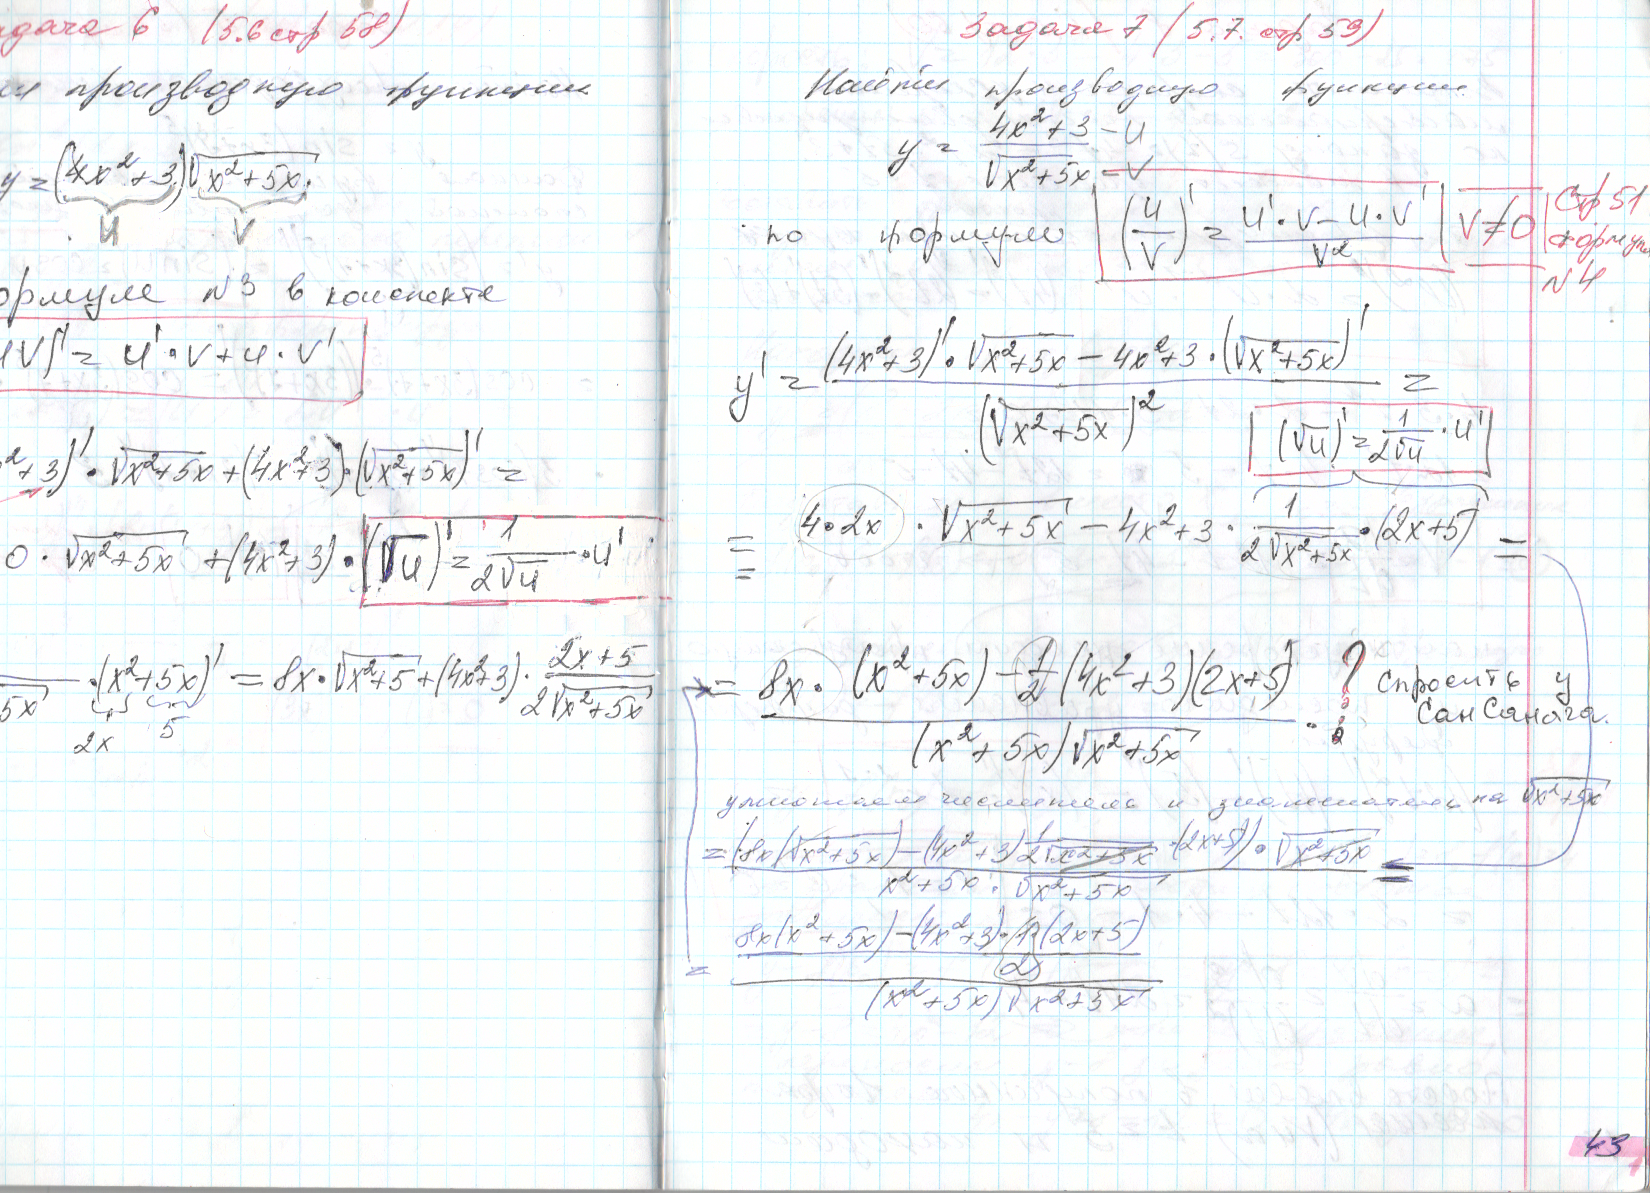 дача 6 (5.6 стр 58)
производную функции
y = (4x²+3)√(x²+5x)
u v
ормуле №3 в конспекте
UV)' = u'·v+u·v'
x²+3)'·√(x²+5x)+(4x²+3)·(√(x²+5x))' =
0·√(x²+5x) +(4x²+3)·(√u)' = 1/(2√u)·u'
·(x²+5x)' = 8x·√(x²+5)+(4x²+3)·(2x+5)/(2√(x²+5x))
2x 5
Задача 7 (5.7. стр 59)
Найти производную функции
y = (4x²+3)/√(x²+5x) – u – v
по формуле (u/v)' = (u'·v–u·v')/v² v≠0 Стр 51
формула
№4
y' = ((4x²+3)'·√(x²+5x) – 4x²+3·(√(x²+5x))')/(√(x²+5x))² =
(√u)' = 1/(2√u)·u'
= 4·2x·√(x²+5x) – 4x²+3·1/(2√(x²+5x))·(2x+5) =
=
= (8x·(x²+5x) – 1/2(4x²+3)(2x+5))/((x²+5x)√(x²+5x)). ? Спросить у
СанСаныча.
умножаем числитель и знаменатель на √(x²+5x)
= (8x(√(x²+5x)) – (4x²+3)1/(2√(x²+5x))·(2x+5))·√(x²+5x)/(x²+5x·√(x²+5x)) =
= (8x(x²+5x) – (4x²+3)·1(2x+5)/(2))/((x²+5x)√(x²+5x))
43